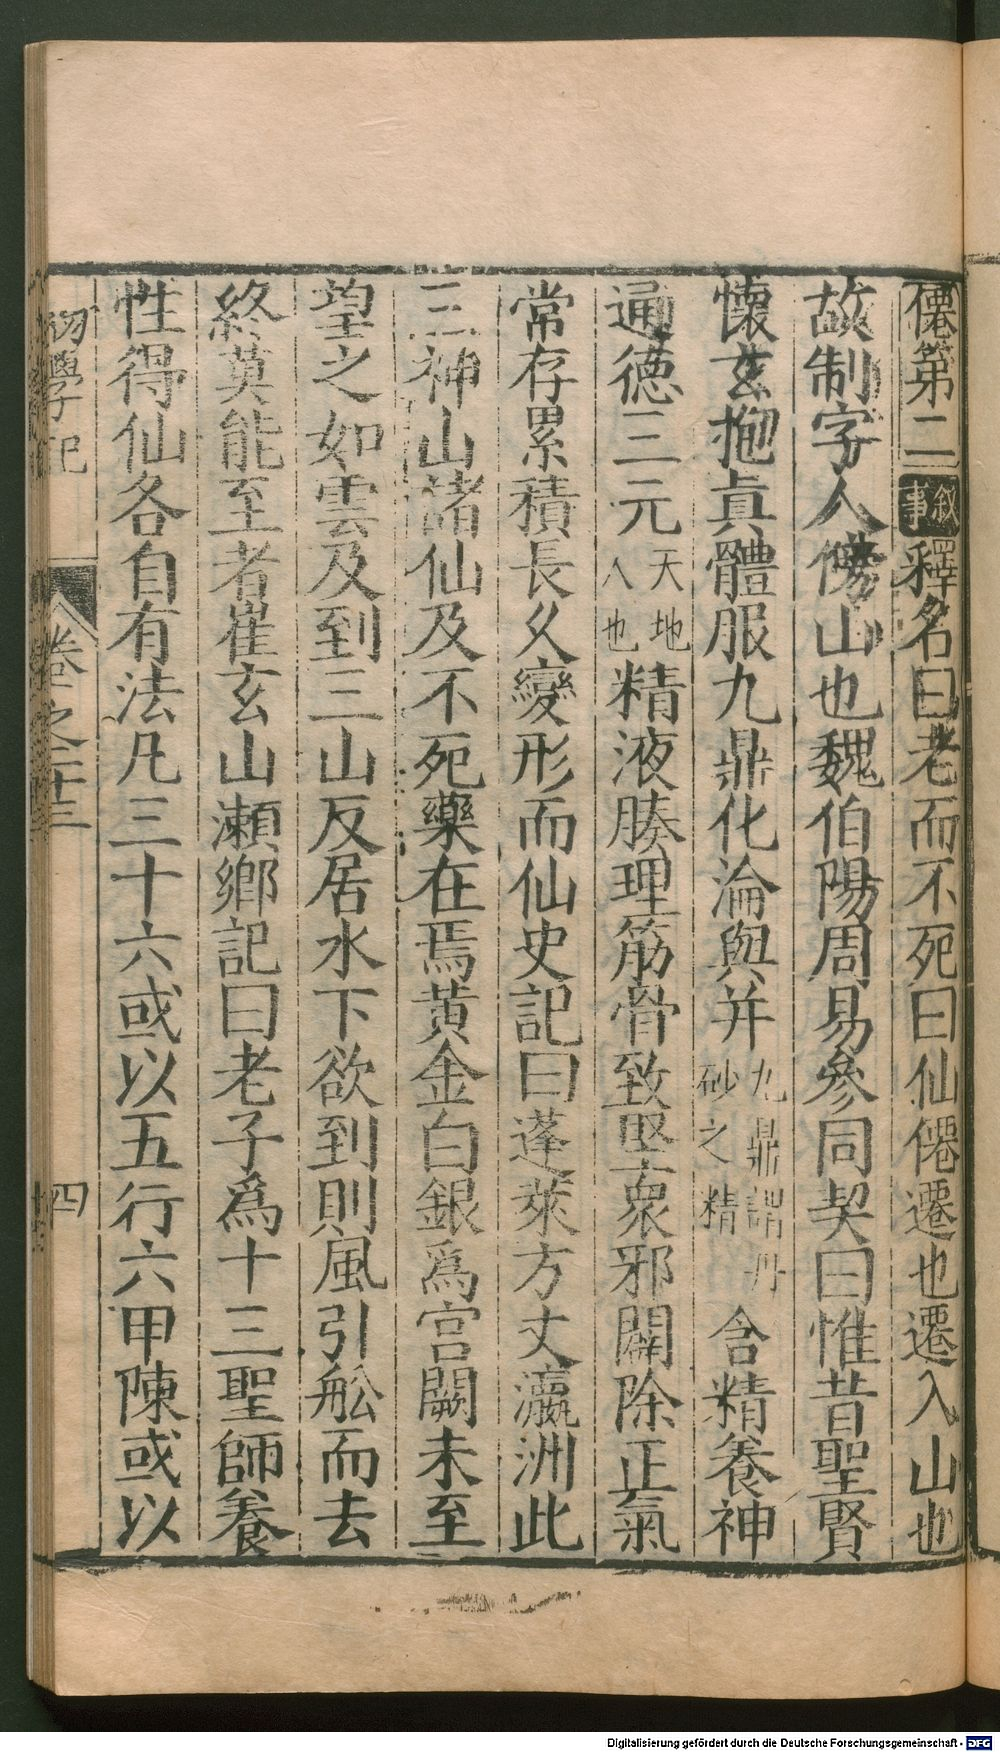 僊第二叙事釋名曰老而不死曰仙僊遷也遷入山也
故制字人傍山也魏伯陽周易參同契曰惟昔聖賢
懷玄抱眞體服九鼎化淪與并九鼎謂丹砂之精含精養神
通德三元天地人也精液腠理筋骨致堅衆邪闢除正氣
常存累積長久變形而仙史記曰蓬萊方丈瀛洲此
三神山諸仙及不死藥在焉黃金白銀爲宫闕未至
望之如雲及到三山反居水下欲到則風引舩而去
終莫能至者崔玄山瀨鄉記曰老子爲十三聖師養
性得仙各自有法凡三十六或以五行六甲陳或以
初學記 卷之二十三 四
Digitalisierung gefördert durch die Deutsche Forschungsgemeinschaft - DFG